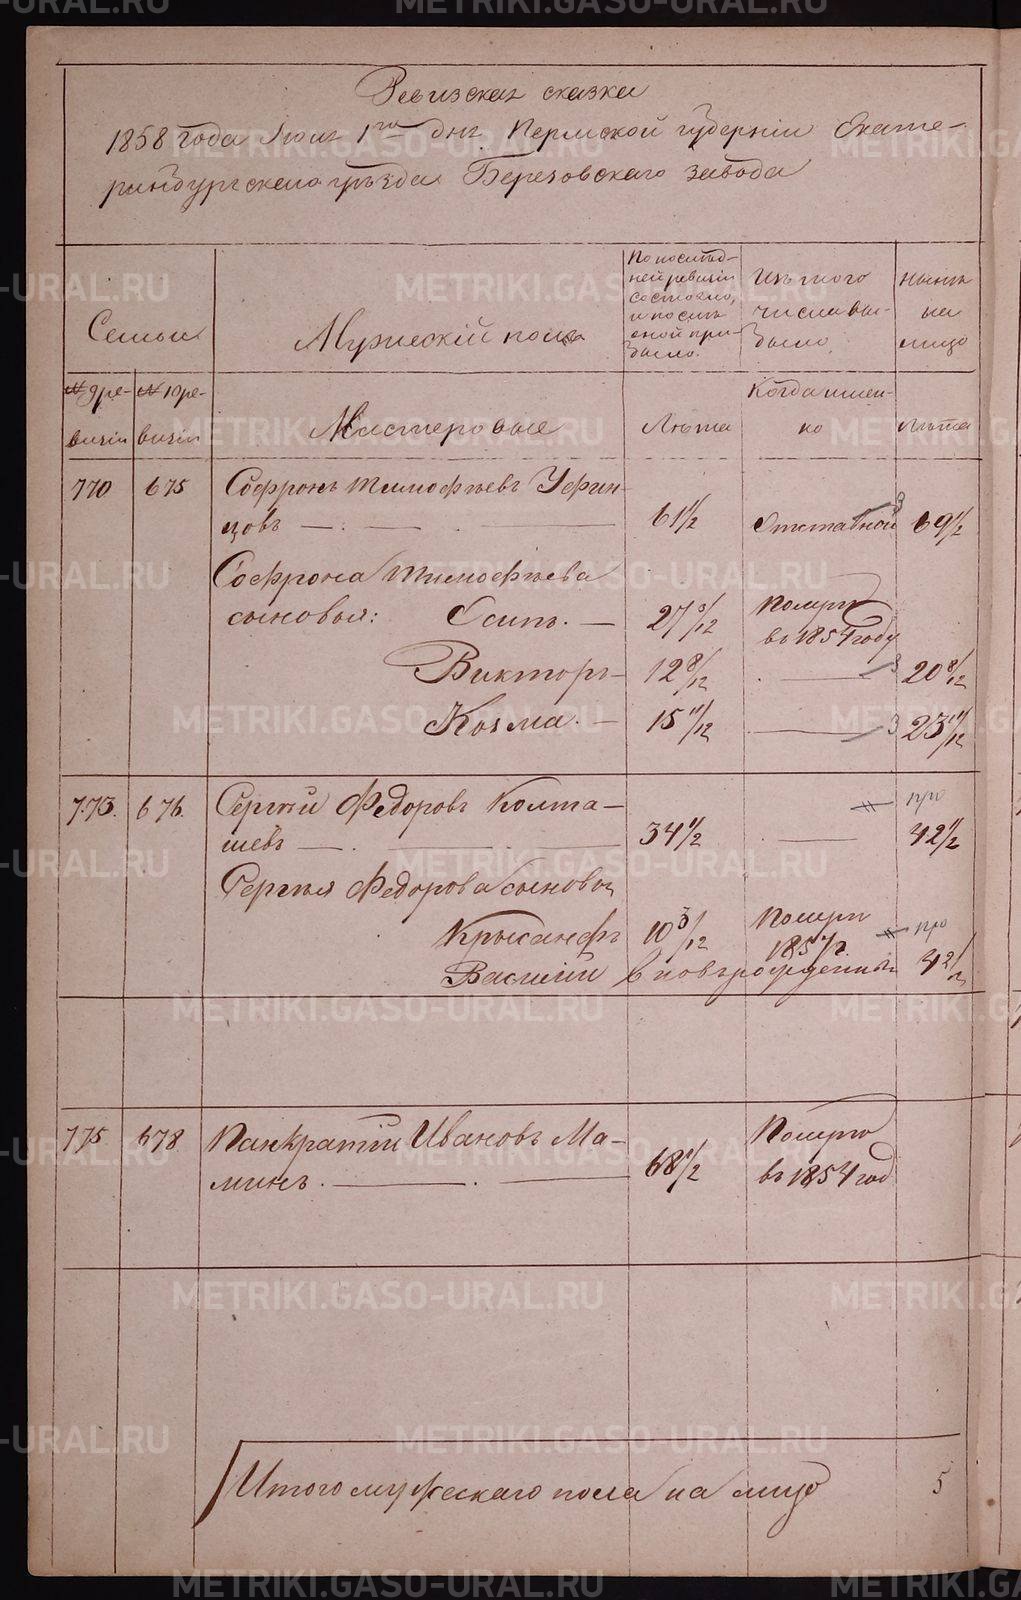 Ревизская сказка
1858 года Июня 1го дня Пермской губернiи Екате-
ринбургскаго уѣзда Березовскаго завода
Семьи
Мужескiй полъ
По послѣд-
ней ревизiи
состояло,
и послѣ
оной при-
было.
Изъ того
числа вы-
было
Нынѣ
на
лицо
№ 9 ре-
визiи
№ 10 ре-
визiи
Мастеровые
Лѣта
Когда имен-
но
Лѣта
770 675 Софронъ Тимофѣевъ Уфин-
цовъ — 61 1/2 Отставной 69 1/2
Софрона Тимофѣева
сыновья: Осипъ. — 27 3/12 Померъ
въ 1854 году
Викторъ — 12 8/12 — 3 20 8/12
Козма. — 15 11/12 — 3 23 11/12
773. 676. Сергѣй Федоровъ Колта- про
шевъ — 34 1/2 — 42 1/2
Сергѣя Федорова сыновья
Крысанфъ 10 3/12 Померъ
1857 г. про
Василiй вновьрожденный
775 678 Панкратiй Ивановъ Ма-
минъ. — 68 1/2 Померъ
въ 1854 год
Итого мужескаго пола на лицо 5
METRIKI.GASO-URAL.RU